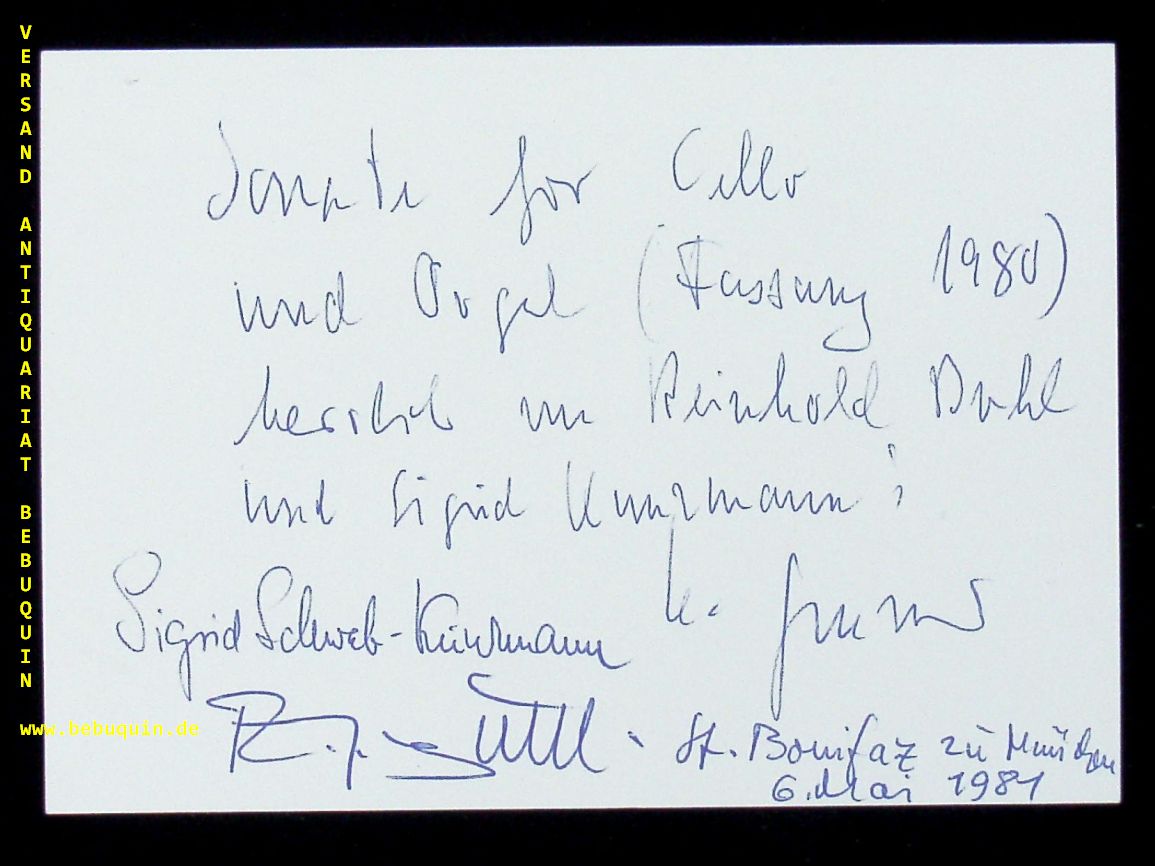 VERSAND ANTIQUARIAT BEBUQUIN
www.bebuquin.de
Sonate für Cello
und Orgel (Fassung 1980)
herzlich von Reinhold Buhl
und Sigrid Kunzmann:
Sigrid Schwab-Kunzmann
St. Bonifaz zu München
6. Mai 1981